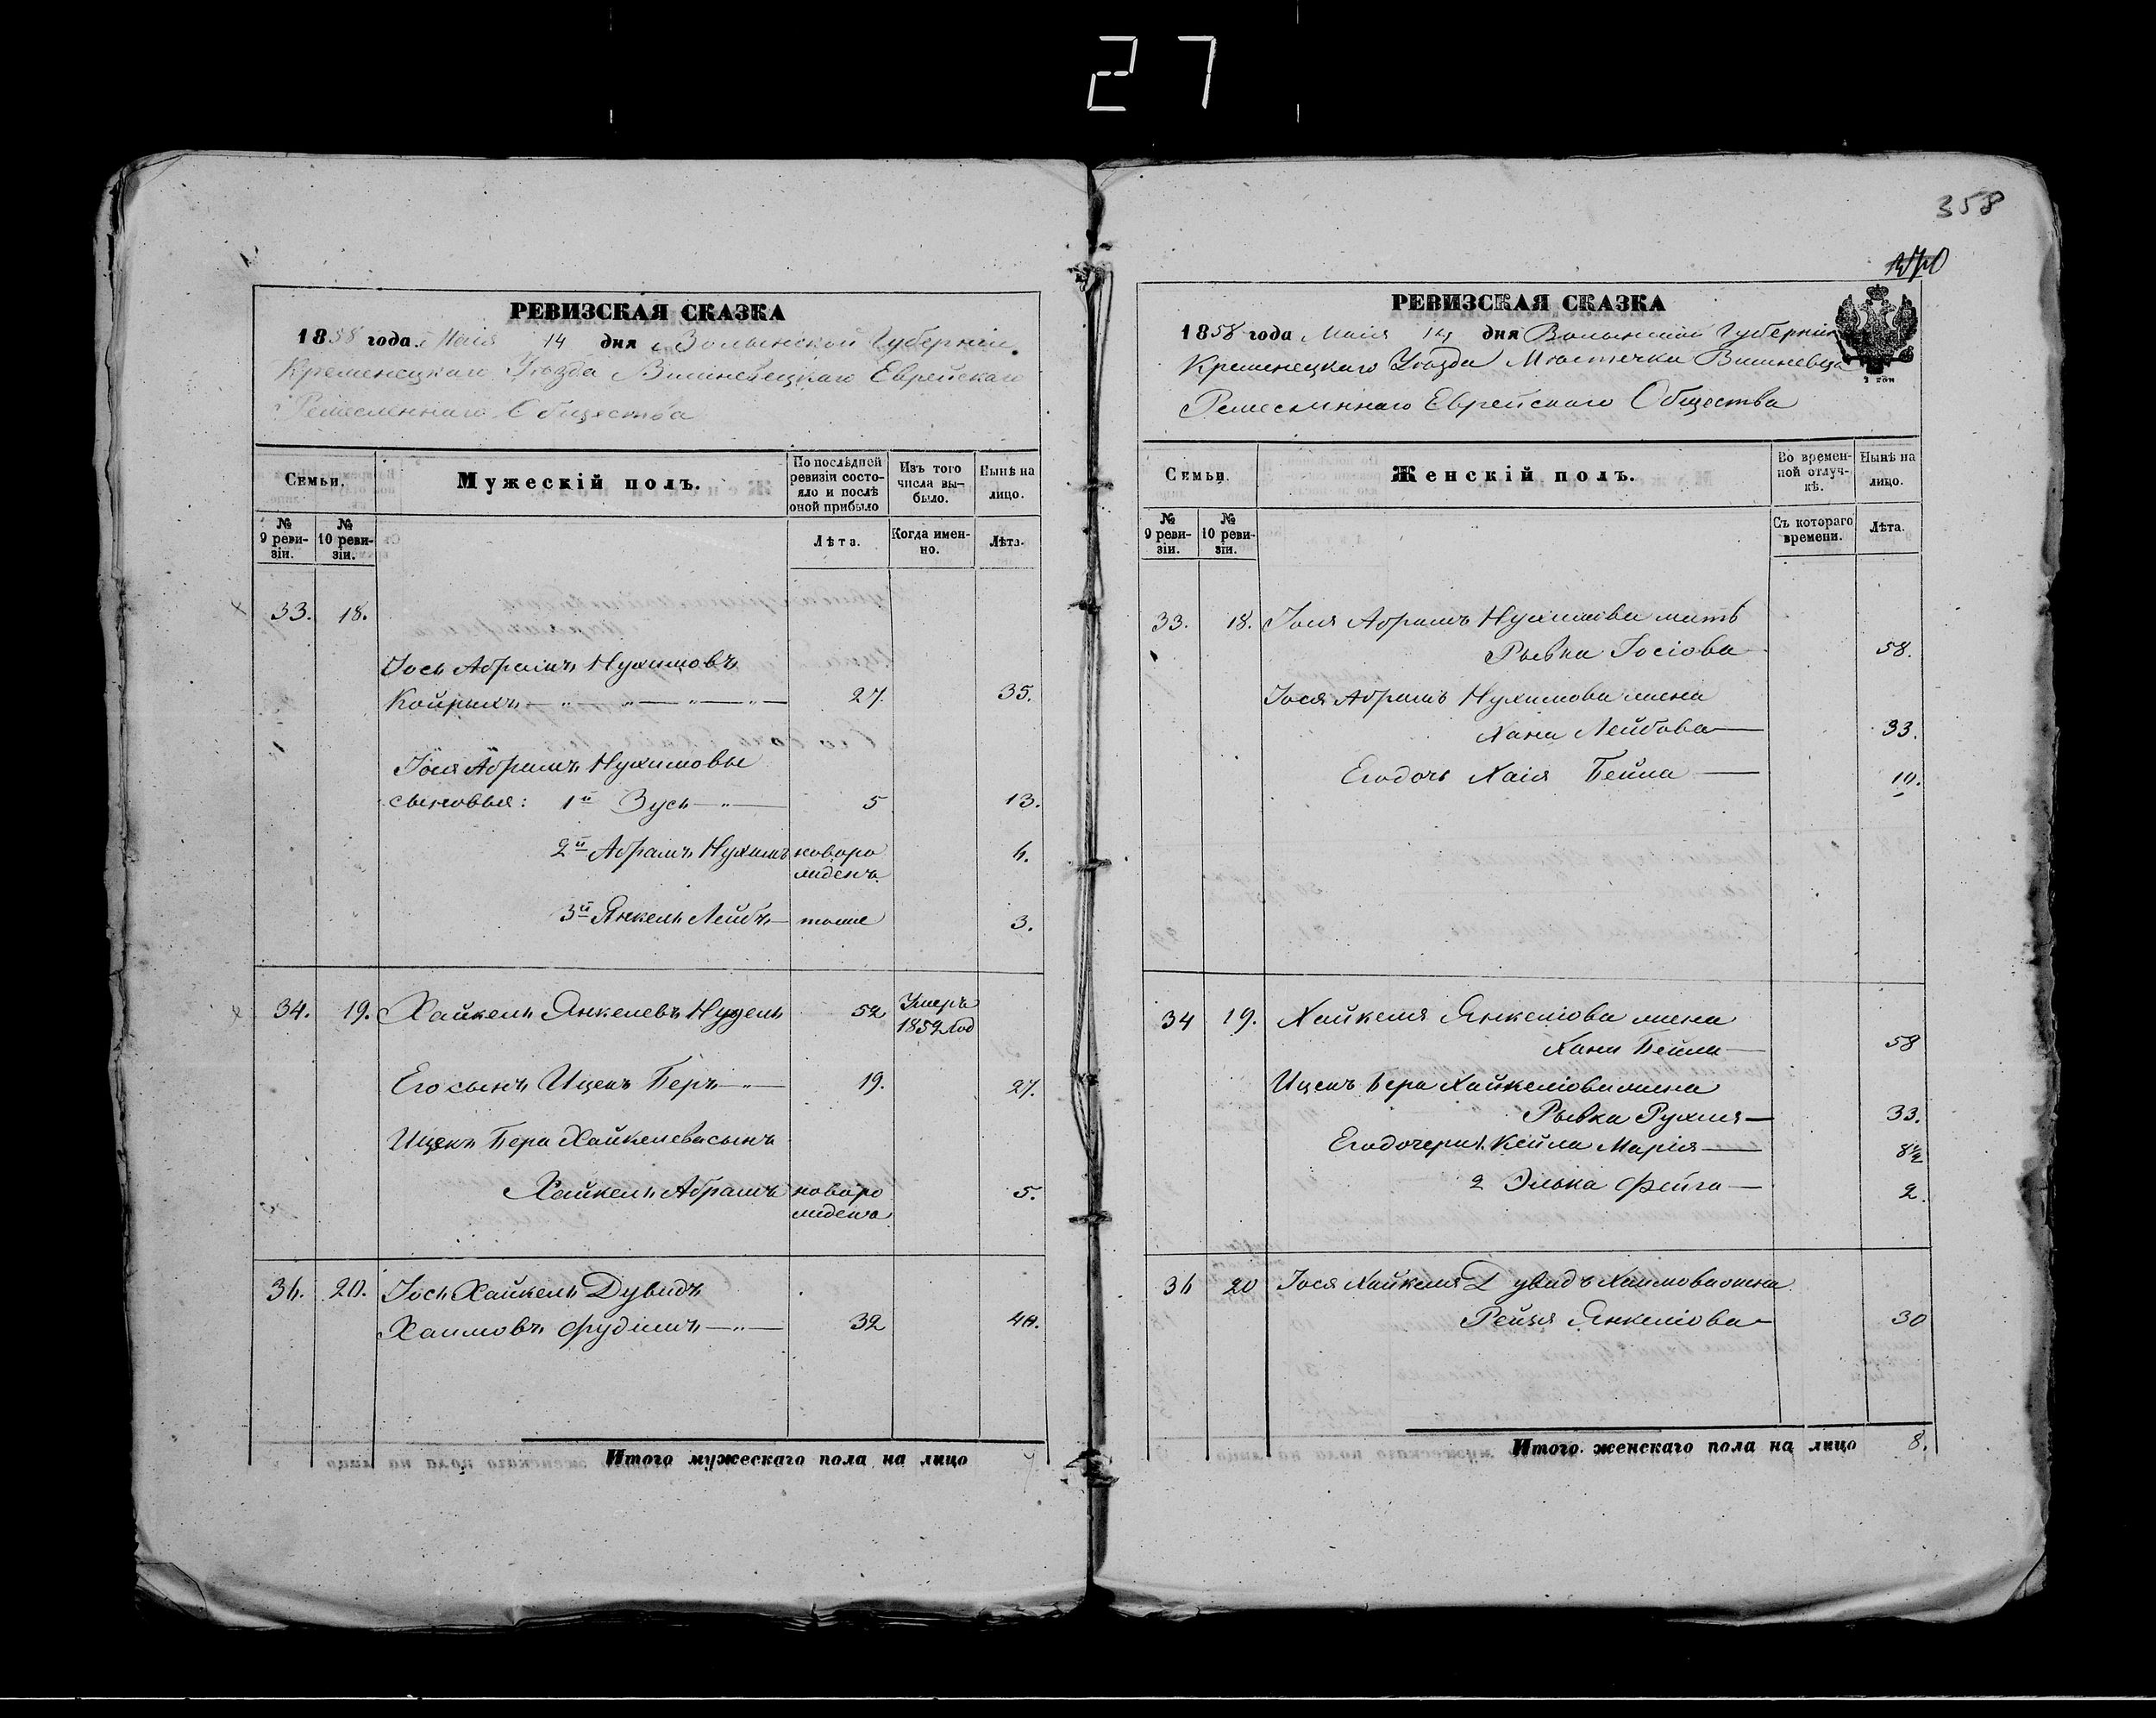 27
358
РЕВИЗСКАЯ СКАЗКА
1858 года Маія 14 дня Волынской Губерніи
Кременецкаго Уѣзда Вишневецкаго Еврейскаго
Ремесленнаго Общества
Семьи.
Мужескій полъ.
По послѣдней ревизіи состояло и послѣ оной прибыло
Изъ того числа выбыло.
Нынѣ на лицо.
№ 9 ревизіи.
№ 10 ревизіи.
Лѣта.
Когда именно.
Лѣта.
33. 18.
Іось Абрамъ Нухимовъ
Койрыхъ 27. 35.
Іося Абрамъ Нухимовы
сыновья: 1й Зусь 5 13.
2й Абрамъ Нухимъ новоро
жденъ
3й Янкель Лейбъ тоже 3.
34. 19. Хайкель Янкелевъ Нудель 52 Умеръ
1852 год
Его сынъ Ицекъ Беръ 19. 27.
Ицекъ Бера Хайкелева сынъ
Хайкель Абрамъ новоро 5.
жденъ
20. Іось Хайкель Дувидъ
Хаимовъ Фудимъ 32 40.
Итого мужескаго пола на лицо 7
РЕВИЗСКАЯ СКАЗКА
1858 года Маія 14 дня Волынской Губерніи
Кременецкаго Уѣзда Мѣстечка Вишневца
Ремесленнаго Еврейскаго Общества
Семьи.
Женскій полъ.
Во временной отлучкѣ.
Нынѣ на лицо.
№ 9 ревизіи.
№ 10 ревизіи.
Съ котораго времени.
Лѣта.
33. 18. Іося Абрамъ Нухимова мать
Рывка Іосіова 58.
Іося Абрамъ Нухимова жена
Хана Лейбова 33.
Его дочь Хаія Бейла 10.
34 19. Хайкеля Янкеліова жена
Хана Бейла 58
Ицекъ Бера Хайкеліова жена
Рывка Рухля 33.
Его дочери 1. Кейла Марія 8½
2 Элька Фейга 2.
20 Іося Хайкеля Дувидъ Хаимова жена
Рейзя Янкеліова 30
Итого женскаго пола на лицо 8.